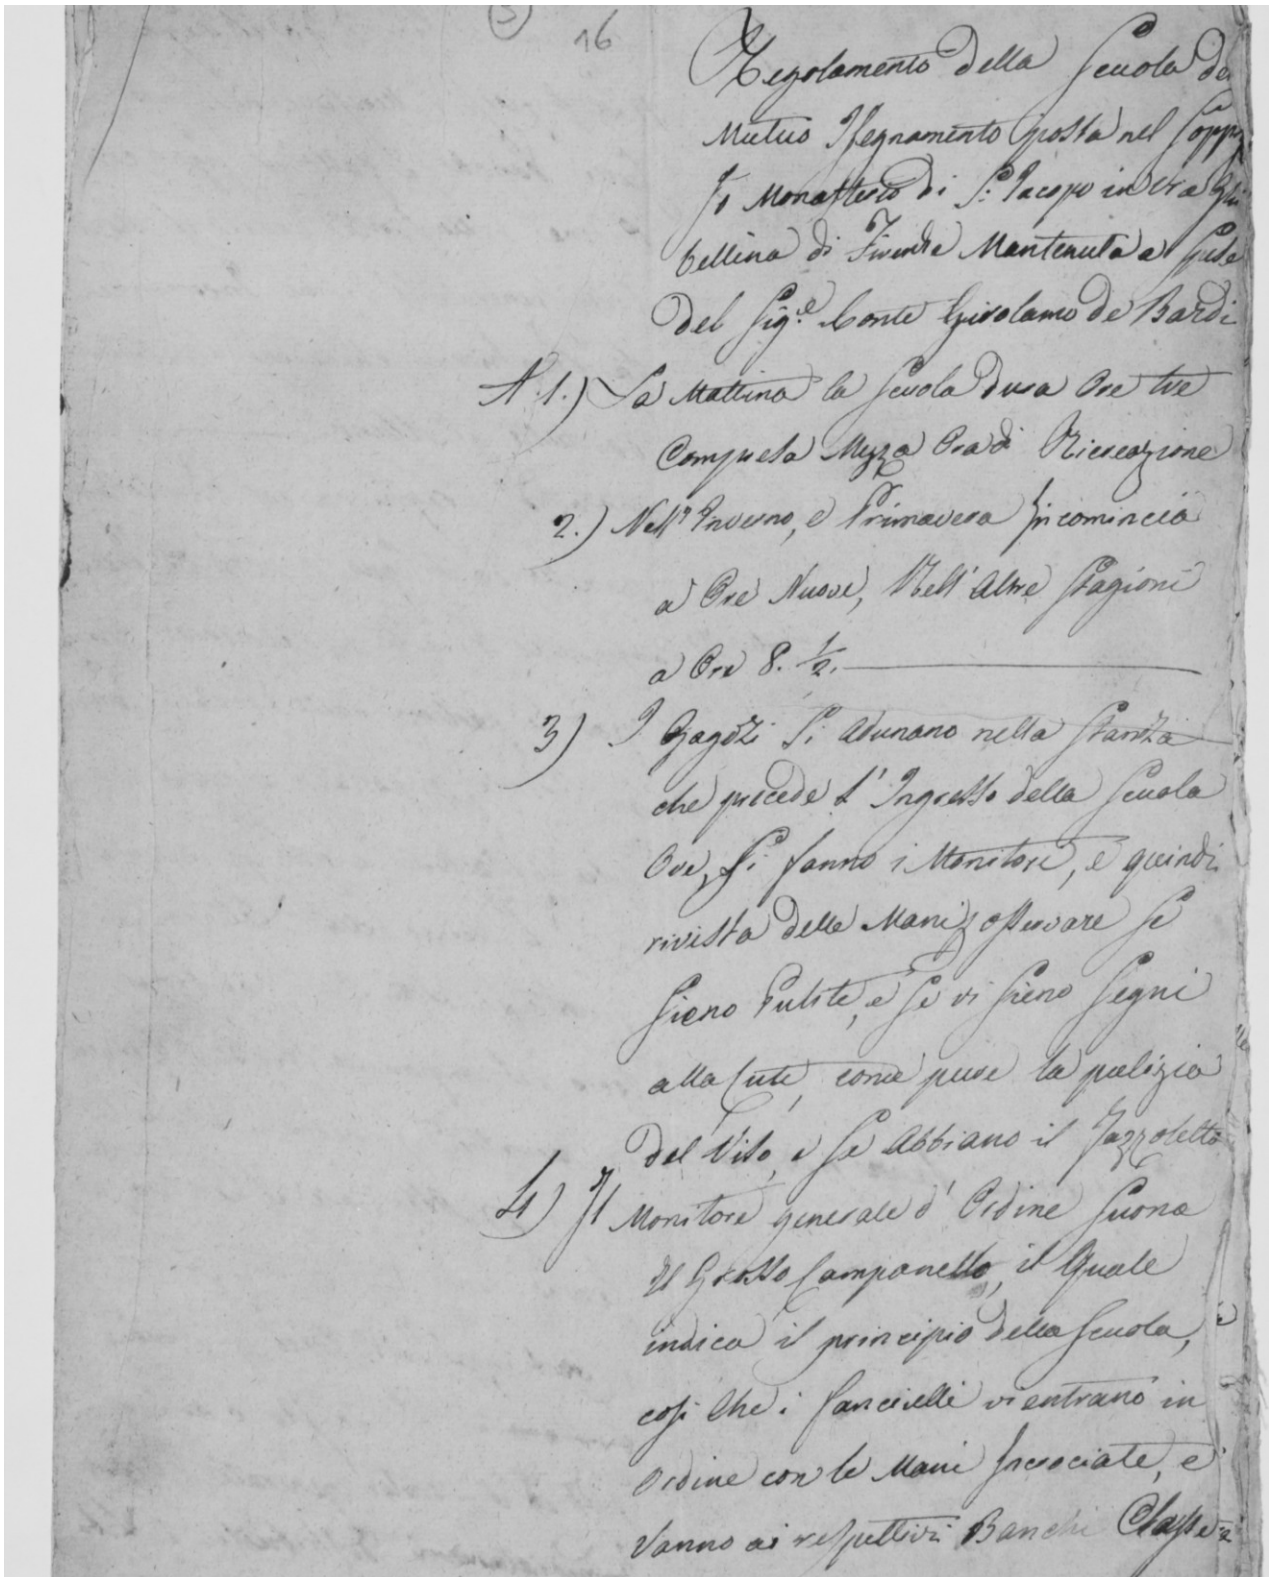 (5) 16
Regolamento della Scuola de
Mutuo Isegnamento posta nel Soppr
so Monastero di S: Iacopo in Via Ghi
bellina di Firenze Mantenuta a Spese
del Sig.e Conte Girolamo de Bardi
N. 1.) La Mattina la Scuola dura Ore tre
Compresa Mezza Ora di Ricreazione
2.) Nell' Inverno, e Primavera Incomincia
a Ore Nuove, Nell' Altre Stagioni
a Ore 8. 1/2.
3) I Ragazzi Si adunano nella Stanza
che precede l' Ingresso della Scuola
Ove, Si fanno i Monitori, e quindi
rivista delle Mani osservare Se
Sieno Pulite, e Se vi Sieno Segni
alla Cute, come pure la pulizia
del Viso, e Se Abbiano il Fazzoletto
4) Il Monitore generale d' Ordine Suona
Il Grosso Campanello, il Quale
indica il principio della Scuola,
cosi Che i fanciulli vi entrano in
Ordine con le Mani Incrociate, e
Vanno ai respettivi Banchi Classe